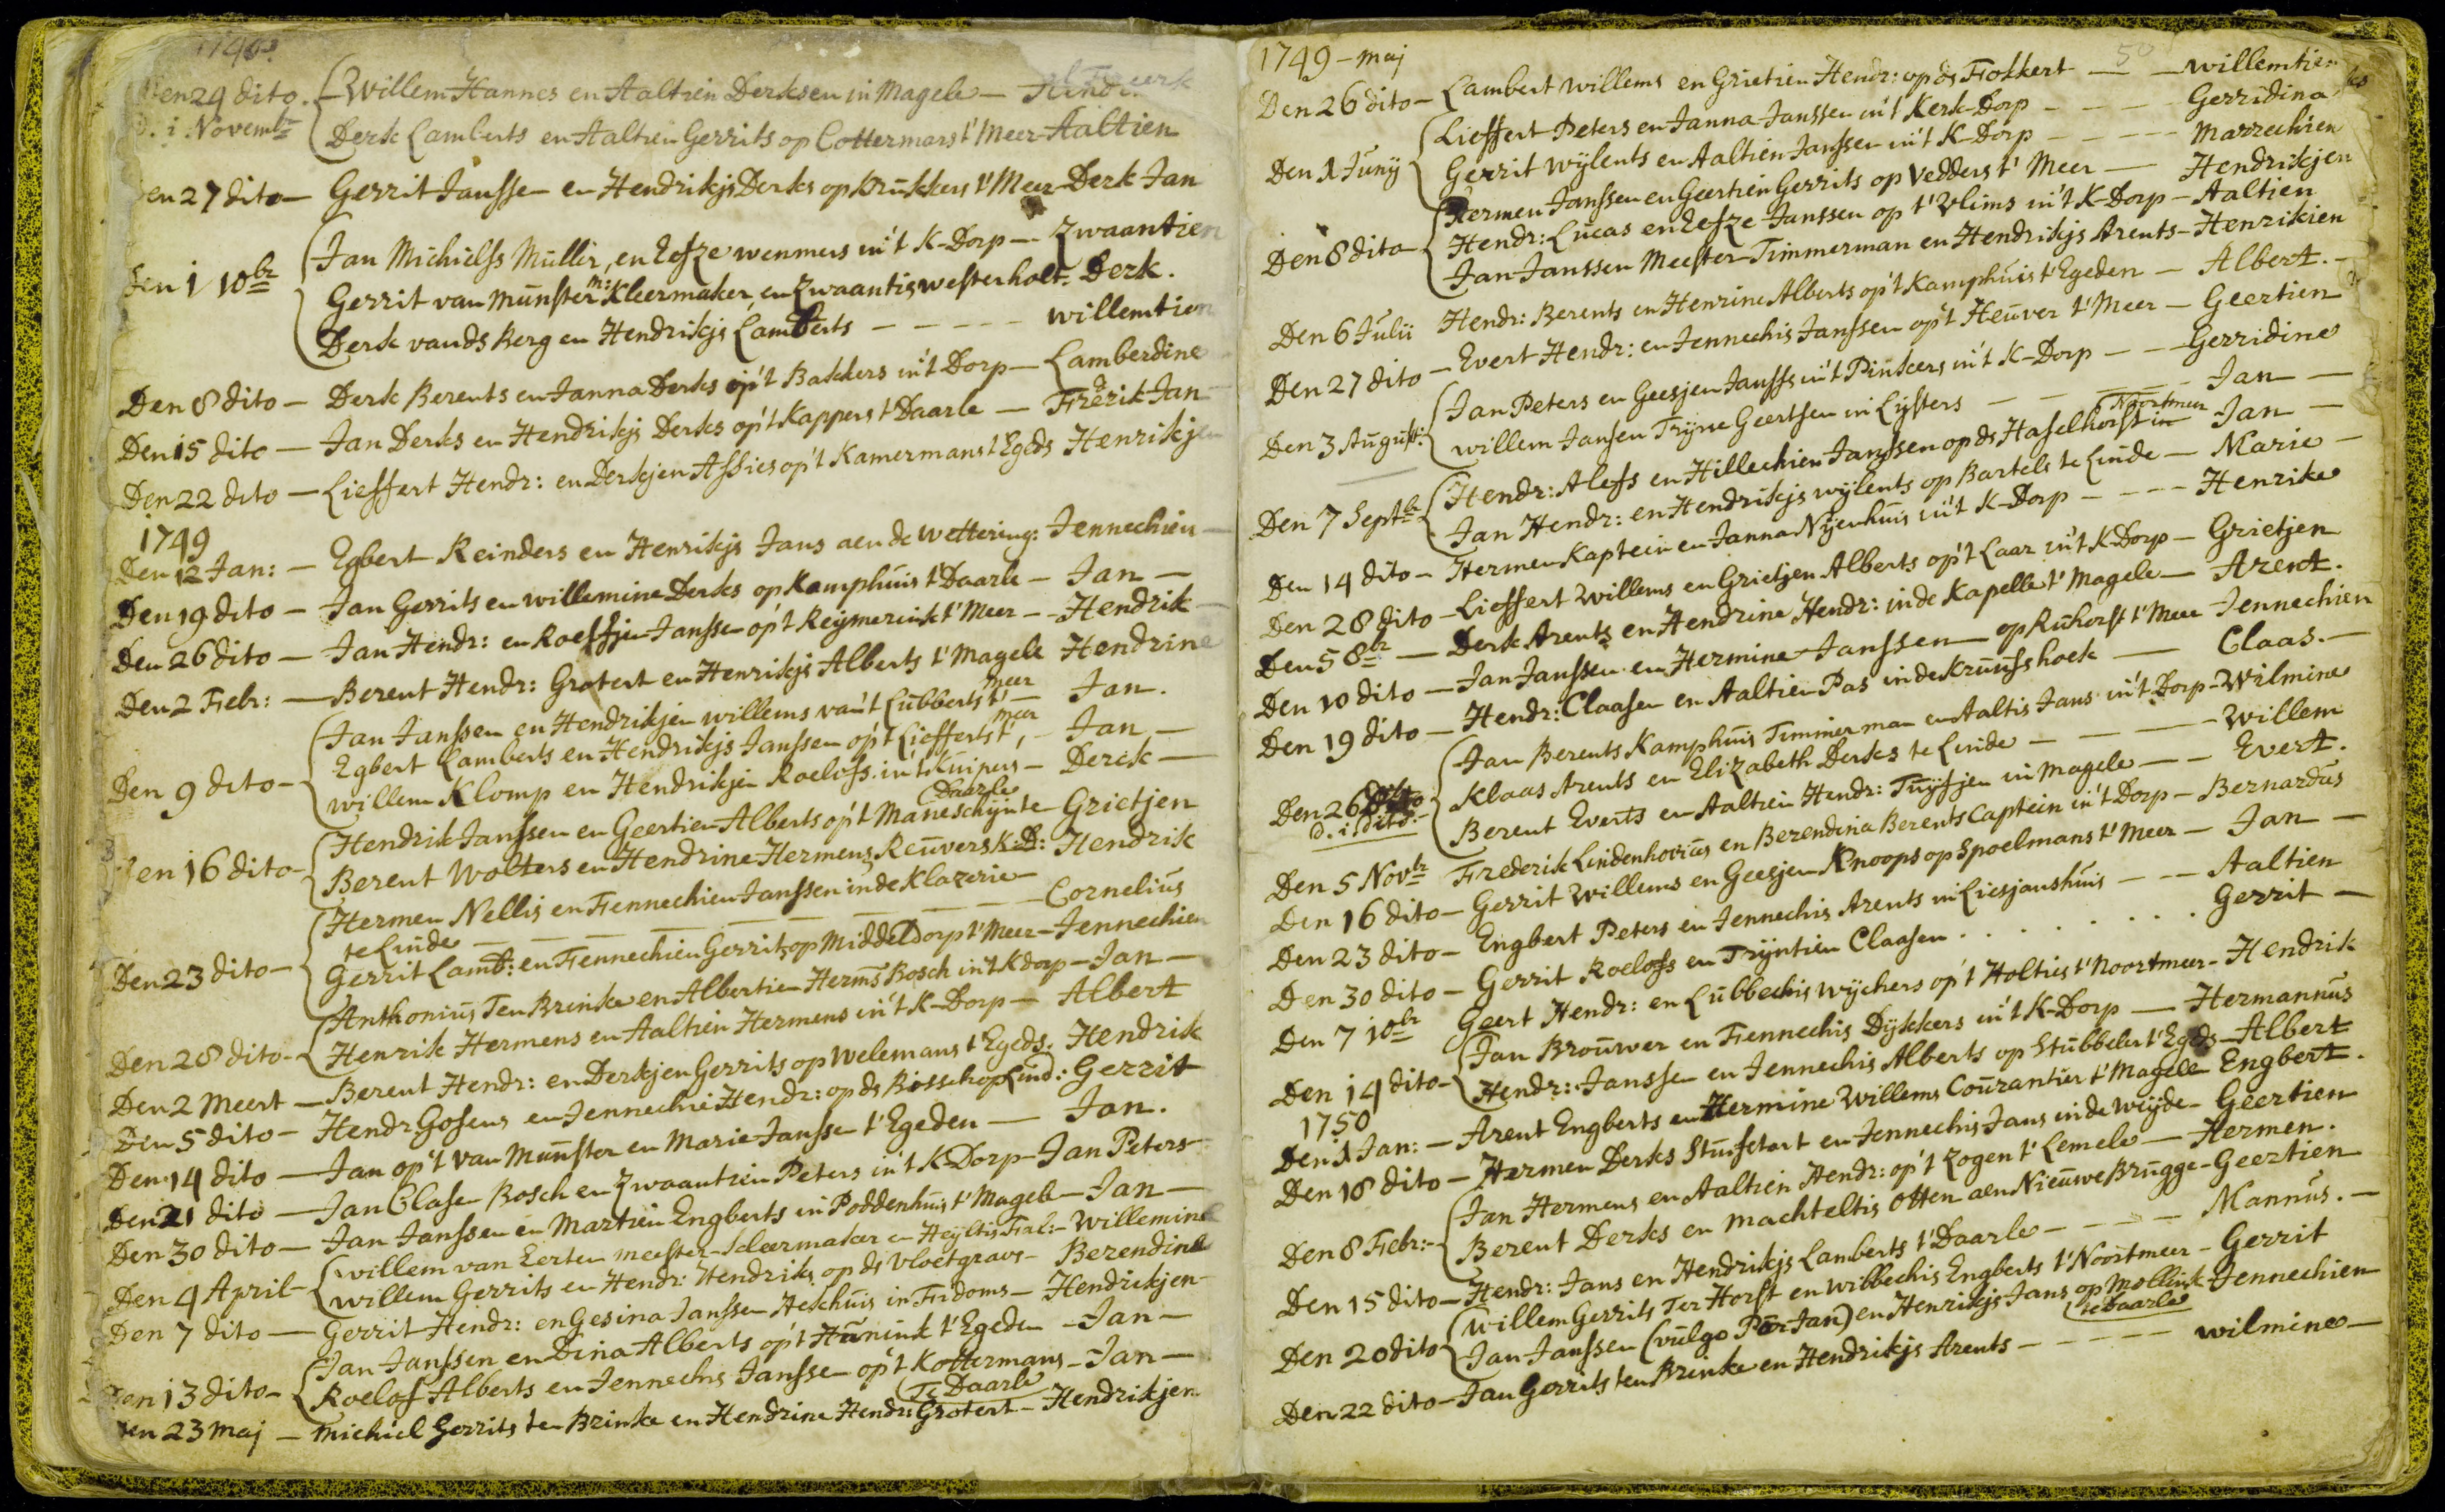 1748.
Den 24 dito. - Willem Hannes en Aaltien Derksen in Magele -
D. 1. Novembr Derk Lamberts en Aaltien Gerrits op Cottermars t' Meer - Aaltien
Den 27 dito - Gerrit Janssen en Hendrikjs Derks op Krukkers t' Meer - Derk Jan
Den 1 10br Jan Michielss Muller, en Eefze wenmers in't K-Dorp - Zwaantien
Gerrit van Munster m: Kleermaker, en Zwaantis westerholt. Derk.
Derk van ds Berg en Hendrikjs Lamberts - - - - - willemtien
Den 8 dito - Derk Berents en Janna Derks op't Bakkers in't Dorp - Lamberdine
Den 15 dito - Jan Derks en Hendrikjs Derks op't Kappers t Daarle - Frerik Jan
Den 22 dito - Lieffert Hendr: en Derkjen Assies op't Kamermans t Egeds Henrikjen
1749
Den 12 Jan: - Egbert Reinders en Henrikjs Jans aen de wettering: Jennechien -
Den 19 dito - Jan Gerrits en willemine Derks op Kamphuis t' Daarle - Jan -
Den 26 dito - Jan Hendr: en Roeffjen Janssen op't Reijmerink t' Meer - - Hendrik -
Den 2 Febr: - Berent Hendr: Grotert en Henrikjs Alberts t' Magele Hendrine
Den 9 dito - Jan Janssen en Hendrikjen willems van't Lubberts t' meer - Jan.
Egbert Lamberts en Hendrikjs Janssen op't Liefferts t' meer, - Jan -
willem Klomp en Hendrikjen Roelofs in't Kuipers - Derck -
Den 16 dito - Hendrik Janssen en Geertien Alberts op't Maneschijn te Daarle - Grietjen
Berent Wolters en Hendrine Hermens Reuvers K:D: Hendrik
Den 23 dito - Hermen Nellis en Fennechien Janssen in de Klazerie
te Linde - - - - - - - Cornelius
Gerrit Lamb: en Fennechien Gerrits op Middeldorp t' Meer - Jennechien
Den 28 dito - Anthonius Ten Brinke en Albertien Herms Bosch in't Kdorp - Jan -
Henrik Hermens en Aaltien Hermens in't K-Dorp - Albert
Den 2 Meert - Berent Hendr: en Derkjen Gerrits op Welemans t' Egeds: Hendrik
Den 5 dito - Hendr Gosens en Jennechie Hendr: op ds Bisschop Lind: Gerrit
Den 14 dito - Jan op't van Munster en Marie Janssen t' Egeden - Jan.
Den 21 dito - Jan Clasen Bosch en Zwaantien Peters in't K-Dorp - Jan Peters
Den 30 dito - Jan Janssen en Martien Engberts in Poddenhuis t' Magele - Jan -
Den 4 April - willem van Eerten meester-kleermaker en Heijltis - Willemine
willem Gerrits en Hendr: Hendriks op ds vloetgrave - Berendine
Den 7 dito - Gerrit Hendr: en Gesina Janssen Aeschuis in Fridoms - Hendrikjen -
Den 13 dito - Jan Janssen en Dina Alberts op't Hunink t' Egeden - Jan -
Roelof Alberts en Jennechs Janssen op't Kottermans - Jan -
Den 23 Maj - Michiel Gerrits ten Brinke en Hendrine Hendr: Grotert Te Daarle - Hendrikjen
1749 - Maj
50
Den 26 dito - Lambert willems en Grietien Hendr: op ds Folkert - - willemtien
Den 1 Junij Lieffert Peters en Janna Janssen in't Kerk-Dorp - - - - Gerridina
Gerrit wijlents en Aaltien Janssen in't K-Dorp - - - - Marrechien
Den 8 dito - Hermen Janssen en Geertien Gerrits op Vedders t' Meer - Hendrikjen
Hendr: Lucas en Eefze Janssen op t' Vlims in't K-Dorp - Aaltien
Jan Janssen Meester-Timmerman en Hendrikjs Arents - Henrikien
Den 6 Julii Hendr: Berents en Henrine Alberts op't Kamphuis t' Egeden - Albert. -
Den 27 dito - Evert Hendr: en Jennechis Janssen op't Heuver t' Meer - Geertien
Den 3 August: Jan Peters en Geesjen Janss in't Pinkers in't K-Dorp - - Gerridine
willem Jansen Trijne Geertsen in Lijsters - - - - Jan -
Den 7 Septbr Hendr: Alefs en Hillechien Janssen op ds Haselhorst in Noortmeer Jan -
Jan Hendr: en Hendrikjs wijlents op Bartels te Linde - Marie -
Den 14 dito - Hermen Kaptein en Janna Nijenhuis in't K-Dorp - - - - Henrike
Den 28 dito - Lieffert Willems en Grietjen Alberts op't Laar in't K-Dorp - Grietjen
Den 5 8br - Derk Arents en Hendrine Hendr: in de Kapelle t' Magele - Arent.
Den 10 dito - Jan Janssen en Hermine Janssen - op Ruhorst t' Meer Jennechien
Den 19 dito - Hendr: Claasen en Aaltien Pas in de Kruushoek - Claas. -
Den 26 dito
D. i. dito. Jan Berents Kamphuis Timmerman en Aaltis Jans in't Dorp - Wilmine
Klaas Arents en Elizabeth Derks te Linde - - - Willem
Berent Everts en Aaltien Hendr: Tuijfjen in Magele - - Evert.
Den 5 Novbr Frederik Lindenhovius en Berendina Berents Captein in't Dorp - Bernardus
Den 16 dito - Gerrit Willems en Geesjen Knoops op Spoelmans t' Meer - Jan -
Den 23 dito - Engbert Peters en Jennechis Arents in Liesjanshuis - - - Aaltien
Den 30 dito - Gerrit Roelofs en Trijntien Claasen . . . . . . . Gerrit -
Den 7 10br Geert Hendr: en Lubbechis wijchers op't Holties t' Noortmeer - Hendrik
Den 14 dito - Jan Brouwer en Fennechis Dijkkers in't K-Dorp - Hermannus
Hendr: Janssen en Jennechis Alberts op Stubbeler t' Egeds - Albert
1750
Den 1 Jan: - Arent Engberts en Hermine Willems Courantier t' Magele Engbert.
Den 18 dito - Hermen Derks Stuifetart en Jennechis Jans in de weijde - Geertien
Den 8 Febr: - Jan Hermens en Aaltien Hendr: op't Zogen t' Lemele - Hermen.
Berent Derks en Machteltis Otten aen Nieuwe Brugge - Geertien
Den 15 dito - Hendr: Jans en Hendrikjs Lamberts t' Daarle - - - - - Mannus. -
Den 20 dito Willem Gerrits Ter Horst en Wibbechis Engberts t' Noortmeer - Gerrit
Jan Janssen (vulgo Pör Jan) en Henrikjs Jans op Mollink te Daarle Jennechien
Den 22 dito - Jan Gerrits ten Brinke en Hendrikjs Arents - - - - - wilmine -